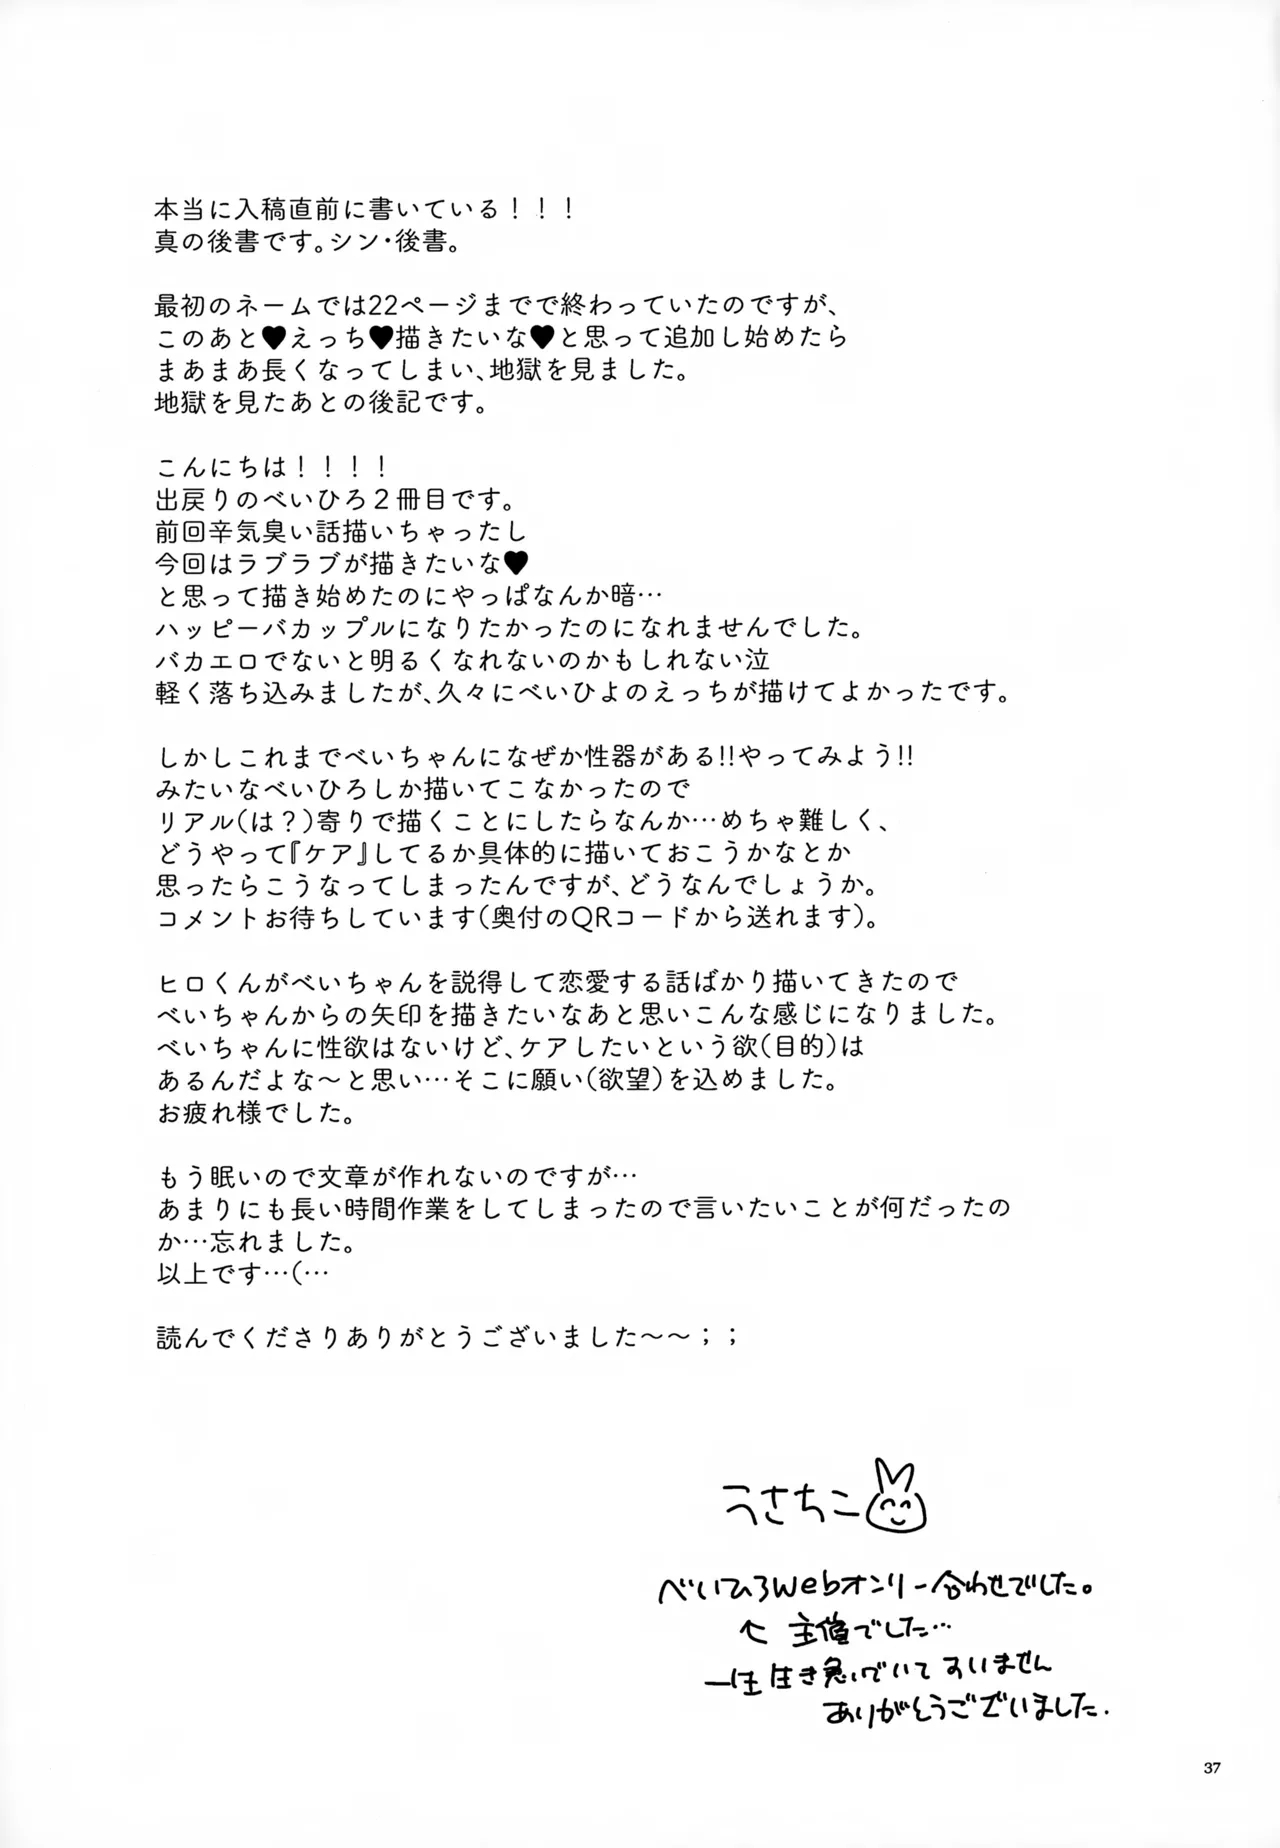 本当に入稿直前に書いている！！！
真の後書です。シン・後書。
最初のネームでは22ページまでで終わっていたのですが、
このあと♥えっち♥描きたいな♥と思って追加し始めたら
まあまあ長くなってしまい、地獄を見ました。
地獄を見たあとの後記です。
こんにちは！！！！
出戻りのべいひろ２冊目です。
前回辛気臭い話描いちゃったし
今回はラブラブが描きたいな♥
と思って描き始めたのにやっぱなんか暗…
ハッピーバカップルになりたかったのになれませんでした。
バカエロでないと明るくなれないのかもしれない泣
軽く落ち込みましたが、久々にべいひよのえっちが描けてよかったです。
しかしこれまでべいちゃんになぜか性器がある!!やってみよう!!
みたいなべいひろしか描いてこなかったので
リアル(は？)寄りで描くことにしたらなんか…めちゃ難しく、
どうやって『ケア』してるか具体的に描いておこうかなとか
思ったらこうなってしまったんですが、どうなんでしょうか。
コメントお待ちしています(奥付のQRコードから送れます)。
ヒロくんがべいちゃんを説得して恋愛する話ばかり描いてきたので
べいちゃんからの矢印を描きたいなあと思いこんな感じになりました。
べいちゃんに性欲はないけど、ケアしたいという欲(目的)は
あるんだよな〜と思い…そこに願い(欲望)を込めました。
お疲れ様でした。
もう眠いので文章が作れないのですが…
あまりにも長い時間作業をしてしまったので言いたいことが何だったの
か…忘れました。
以上です…(…
読んでくださりありがとうございました〜〜；；
うさちこ
べいひろwebオンリー合わせでした。
↑主催でした…
一生生き急いでいてすいません
ありがとうございました.
37